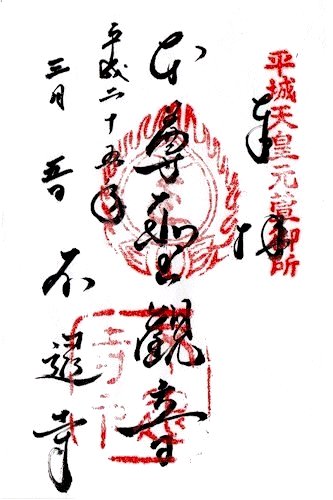 平城天皇元萱御所
奉拝
本尊聖観音
平成二十五年
三月 五日
不退寺